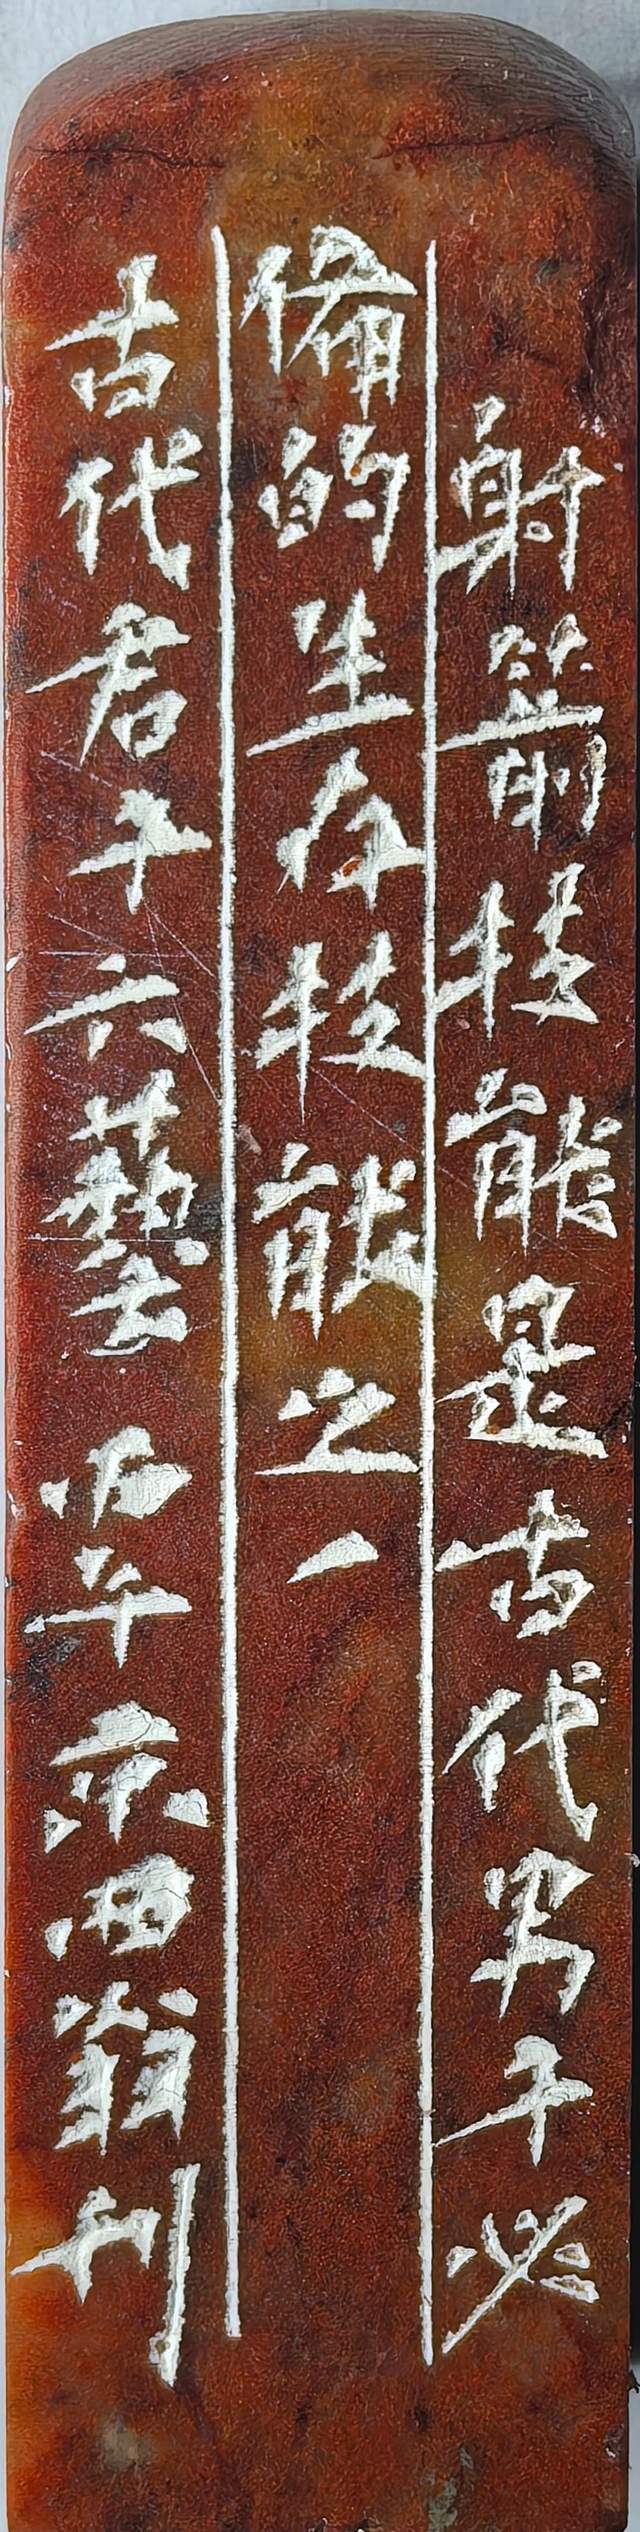 射箭技能是古代男子必
備的生存技能之一
古代君子六藝 丙午京西翁刊